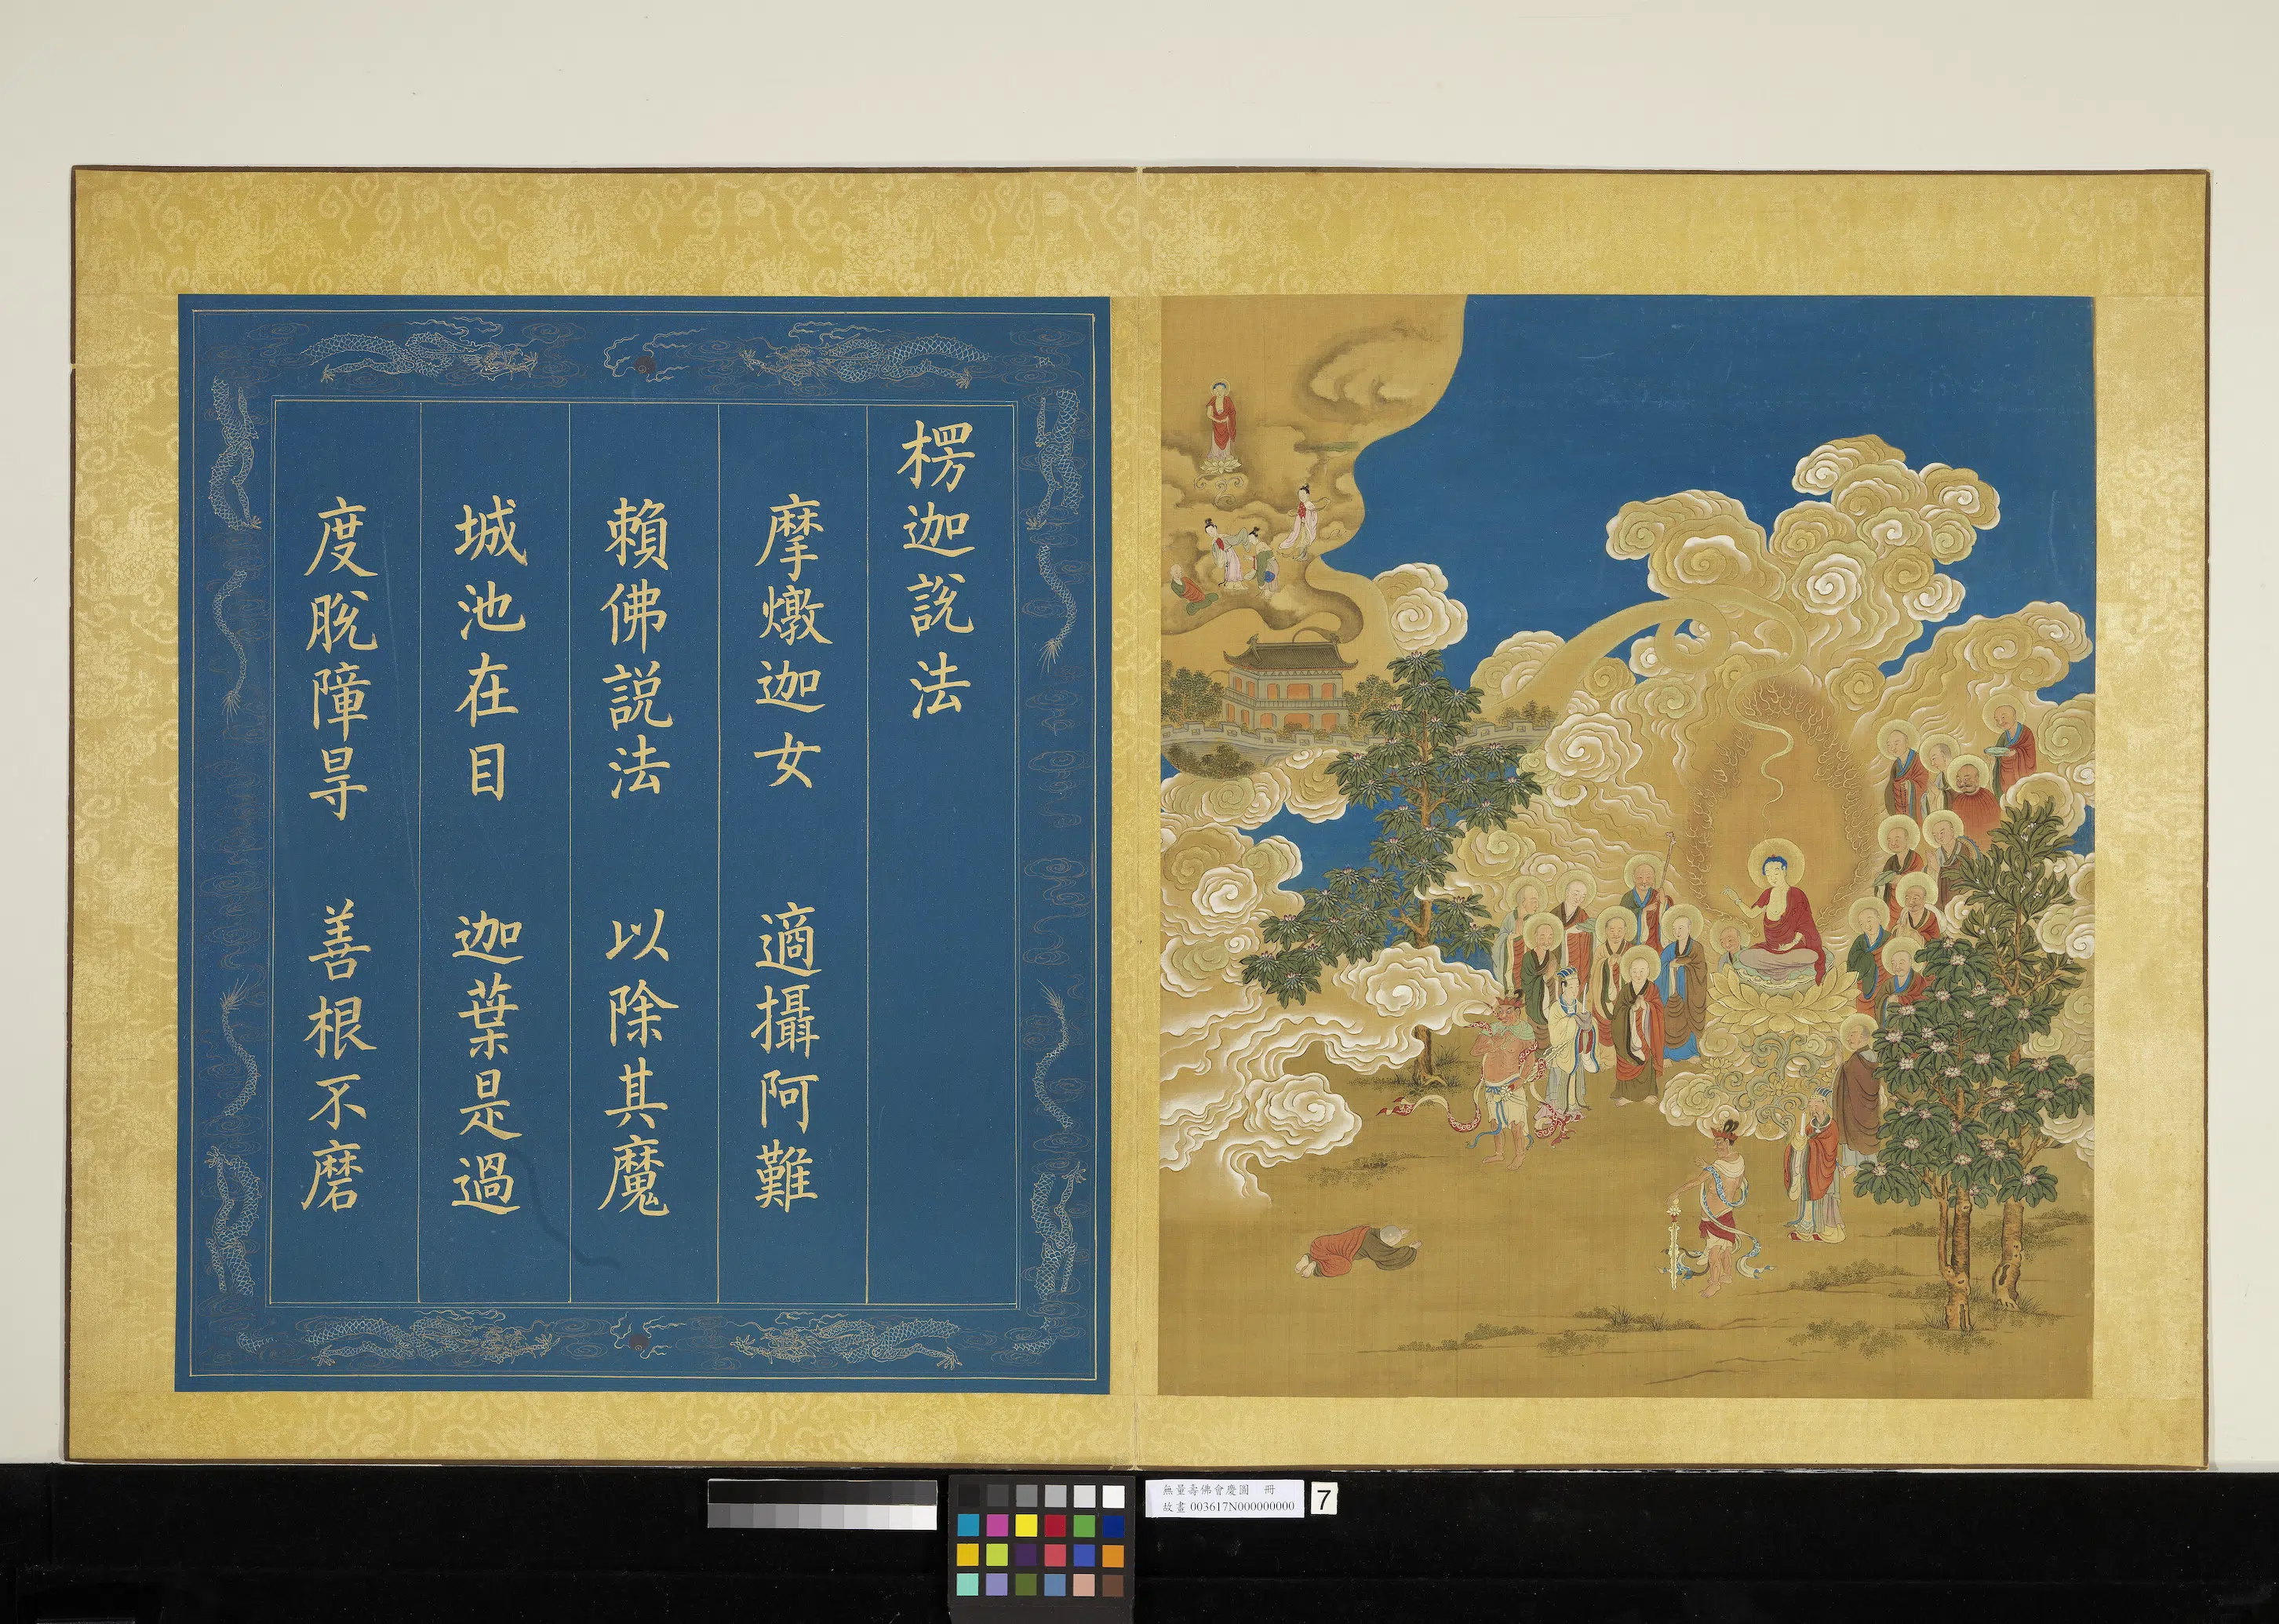 楞迦說法
摩燉迦女 適攝阿難
賴佛説法 以除其魔
城池在目 迦葉是過
度脫障㝵 善根不磨
無量壽佛會慶圖 冊
故畫 003617N000000000
7